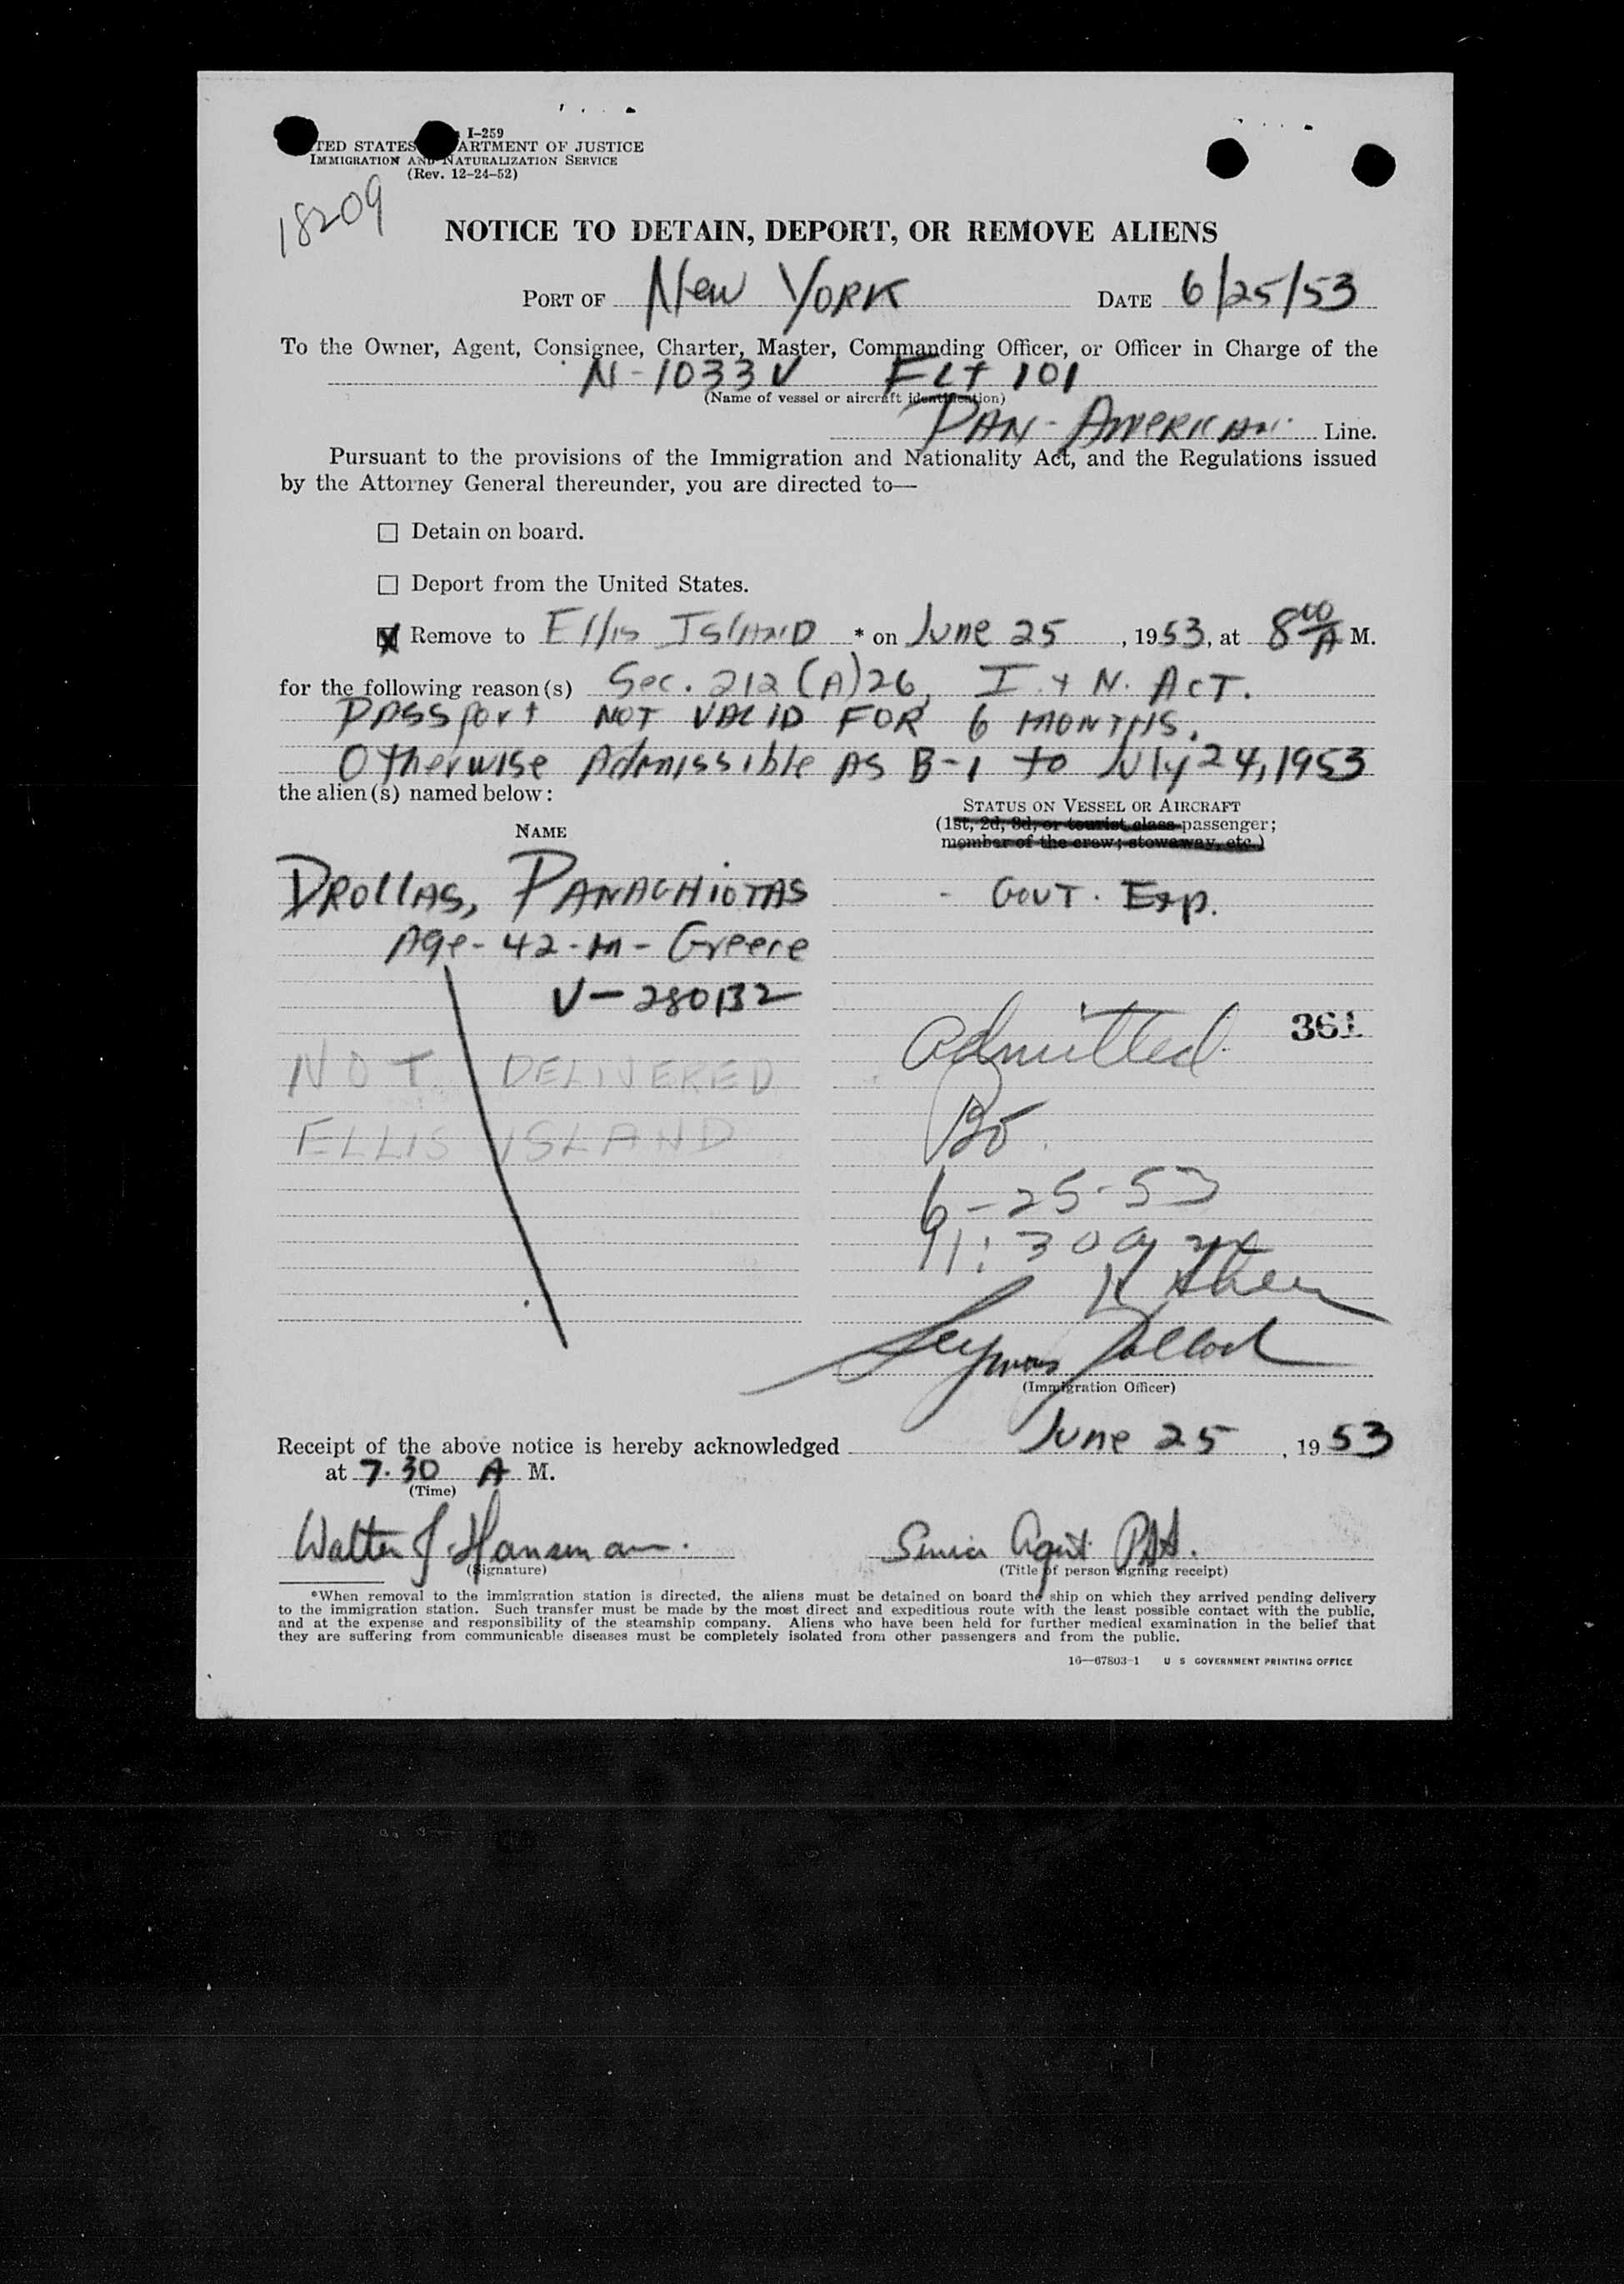 I-259
TED STATES ARTMENT OF JUSTICE
IMMIGRATION AND NATURALIZATION SERVICE
(Rev. 12-24-52)
18209
NOTICE TO DETAIN, DEPORT, OR REMOVE ALIENS
PORT OF New YORK DATE 6/25/53
To the Owner, Agent, Consignee, Charter, Master, Commanding Officer, or Officer in Charge of the
N-1033V FLT 101
(Name of vessel or aircraft identification)
PAN-AMERICAN Line.
Pursuant to the provisions of the Immigration and Nationality Act, and the Regulations issued
by the Attorney General thereunder, you are directed to—
Detain on board.
Deport from the United States.
Remove to Ellis ISLAND * on June 25, 1953, at 8 00 A M.
for the following reason(s) Sec. 212 (A) 26, I. & N. ACT.
PASSport NOT VALID FOR 6 MONTHS.
Otherwise Admissible AS B-1 to July 24, 1953
the alien(s) named below:
STATUS ON VESSEL OR AIRCRAFT
NAME
(1st, 2d, 3d, or tourist class passenger;
member of the crew; stowaway, etc.)
DROLLAS, PANAGHIOTAS - GOVT. Exp.
Age - 42 - M - Greece
V-280132
Admitted 361
NOT DELIVERED
ELLIS ISLAND
6-25-53
11:30 a m
Seymour Pollock
(Immigration Officer)
Receipt of the above notice is hereby acknowledged June 25, 1953
at 7.30 A M.
(Time)
Walter J. Hansman. Senior Agent PAA.
(Signature) (Title of person signing receipt)
*When removal to the immigration station is directed, the aliens must be detained on board the ship on which they arrived pending delivery
to the immigration station. Such transfer must be made by the most direct and expeditious route with the least possible contact with the public,
and at the expense and responsibility of the steamship company. Aliens who have been held for further medical examination in the belief that
they are suffering from communicable diseases must be completely isolated from other passengers and from the public.
16—67803-1 U S GOVERNMENT PRINTING OFFICE